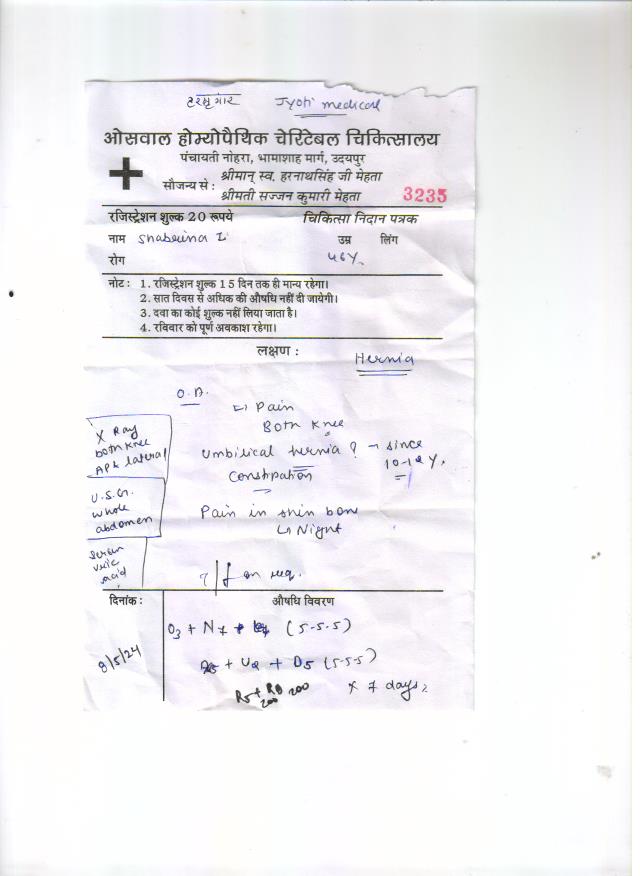 Jyoti medical
ओसवाल होम्योपैथिक चेरिटेबल चिकित्सालय
पंचायती नोहरा, भामाशाह मार्ग, उदयपुर
सौजन्य से : श्रीमान् स्व. हरनाथसिंह जी मेहता
श्रीमती सज्जन कुमारी मेहता
3235
रजिस्ट्रेशन शुल्क 20 रूपये चिकित्सा निदान पत्रक
नाम उम्र लिंग
रोग
नोट : 1. रजिस्ट्रेशन शुल्क 15 दिन तक ही मान्य रहेगा।
2. सात दिवस से अधिक की औषधि नहीं दी जायेगी।
3. दवा का कोई शुल्क नहीं लिया जाता है।
4. रविवार को पूर्ण अवकाश रहेगा।
लक्षण :
Hernia
Pain
Both Knee
X Ray
both Knee
AP & lateral
Umbilical hernia ? → since
10-12 Y.
Constipation
U.S.G.
whole
abdomen
Pain in shin bone
↳ Night
uric
acid
दिनांक : औषधि विवरण
8/5/24
O3 + N7 + (5-5-5)
+ U2 + D5 (5-5-5)
200 200
x 7 days